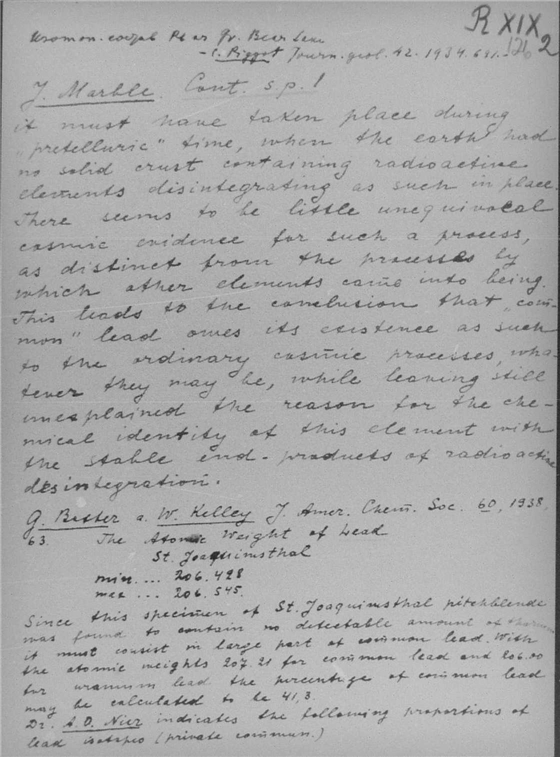 Изотоп. состав Pb из Gr. Bear Lake
R XIX 2
176
— C. Piggot Journ. geol. 42. 1934. 641.
J. Marble. Cont. s.p.!
it must have taken place during
„pretelluric" time, when the earth had
no solid crust containing radioactive
elements disintegrating as such in place.
There seems to be little unequivocal
cosmic evidence for such a process,
as distinct from the processes by
which other elements came into being.
This leads to the conclusion that „com-
mon" lead owes its existence as such
to the ordinary cosmic processes, wha-
tever they may be, while leaving still
unexplained the reason for the che-
mical identity of this element with
the stable end-products of radioactive
desintegration.
G. Baxter a. W. Kelley J. Amer. Chem. Soc. 60, 1938,
63. The Atomic Weight of Lead
St. Joaquimsthal
min. ... 206.428
max ... 206.545.
Since this specimen of St. Joaquimsthal pitchblende
was found to contain no detectable amount of thorium
it must consist in large part of common lead. With
the atomic weights 207.21 for common lead and 206.00
for uranium lead the percentage of common lead
may be calculated to be 41,3.
Dr. A. O. Nier indicates the following proportions of
lead isotopes (private commun.)